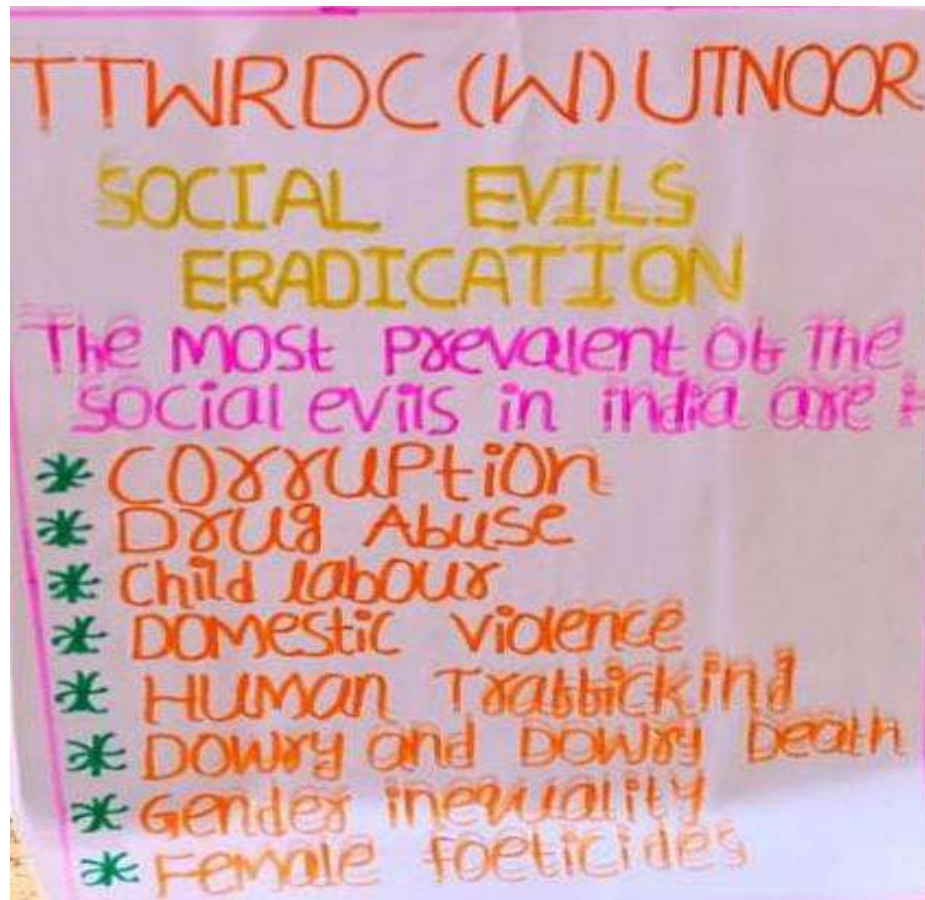 TTWRDC (W) UTNOOR
SOCIAL EVILS
ERADICATION
The MOSt Prevalent of The
social evils in india are :
* CorruPtion
* Drug Abuse
* Child labour
* DOMestic violence
* HUMan Trafficking
* Dowry and Dowry Death
* Gender inequality
* Female foeticides